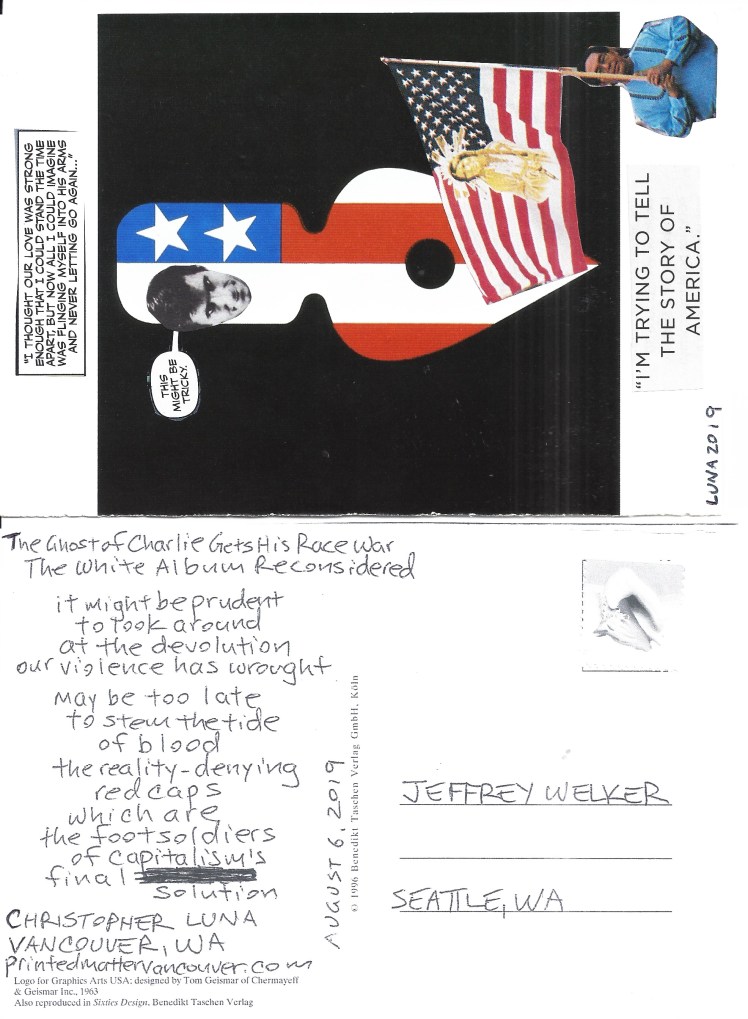 "I THOUGHT OUR LOVE WAS STRONG
ENOUGH THAT I COULD STAND THE TIME
APART, BUT NOW ALL I COULD IMAGINE
WAS FLINGING MYSELF INTO HIS ARMS
AND NEVER LETTING GO AGAIN..."
THIS
MIGHT BE
TRICKY.
"I'M TRYING TO TELL
THE STORY OF
AMERICA."
LUNA 2019
The Ghost of Charlie Gets His Race War
The White Album Reconsidered
it might be prudent
to look around
at the devolution
our violence has wrought
may be too late
to stem the tide
of blood
the reality-denying
red caps
which are
the footsoldiers
of capitalism's
final
solution
CHRISTOPHER LUNA
VANCOUVER, WA
printedmattervancouver.com
Logo for Graphics Arts USA; designed by Tom Geismar of Chermayeff
& Geismar Inc., 1963
Also reproduced in Sixties Design, Benedikt Taschen Verlag
AUGUST 6, 2019
© 1996 Benedikt Taschen Verlag GmbH, Köln
JEFFREY WELKER
SEATTLE, WA